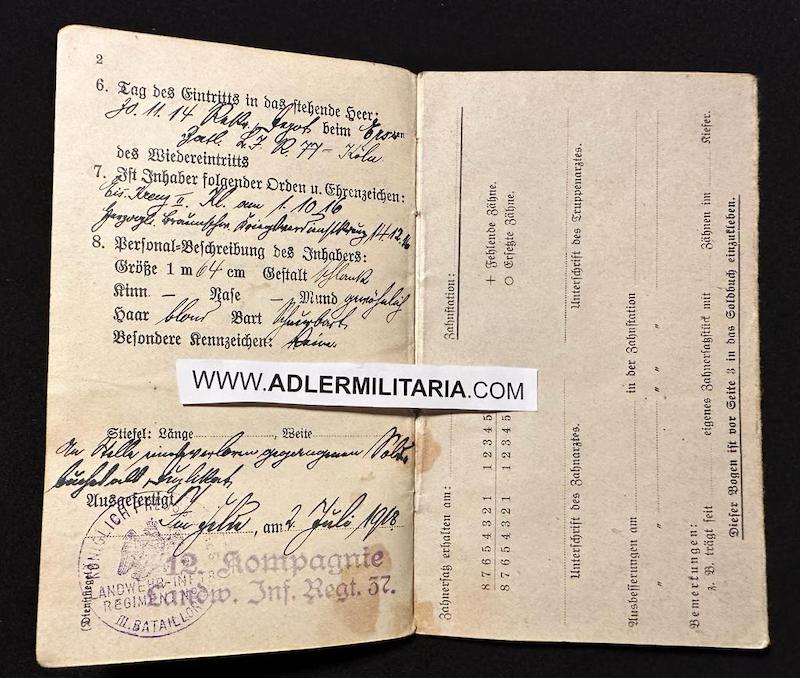 2
6. Tag des Eintritts in das stehende Heer:
30. 11. 14 Rekr. Depot beim Ersatz
Batl. L. I. R. 77 – Köln
des Wiedereintritts
7. Ist Inhaber folgender Orden u. Ehrenzeichen:
Eis. Kreuz II. Kl. am 1. 10 16
Herzogl. Braunschw. Kriegsverdienstkreuz 14.12.16
8. Personal-Beschreibung des Inhabers:
Größe 1 m 64 cm Gestalt schlank
Kinn – Nase – Mund gewöhnlich
Haar blond Bart Schnurbart
Besondere Kennzeichen: keine.
WWW.ADLERMILITARIA.COM
Stiefel: Länge , Weite
An Stelle eines verloren gegangenen Sold-
buches als Duplikat
Ausgefertigt
Im Felde, am 2. Juli 1918
(Dienstsiegel)
KÖNIGLICH PREUSS
LANDWEHR-INF
REGIMENT N
III. BATAILLON
12. Kompagnie
Landw. Inf. Regt. 57.
Zahnstation:
+ Fehlende Zähne.
○ Ersetzte Zähne.
Zahnersatz erhalten am:
8 7 6 5 4 3 2 1 1 2 3 4 5
8 7 6 5 4 3 2 1 1 2 3 4 5
Unterschrift des Zahnarztes. Unterschrift des Truppenarztes.
Ausbesserungen am in der Zahnstation
" " " "
" " " "
Bemerkungen:
z. B. trägt seit eigenes Zahnersatzstück mit Zähnen im Kiefer.
Dieser Bogen ist vor Seite 3 in das Soldbuch einzukleben.